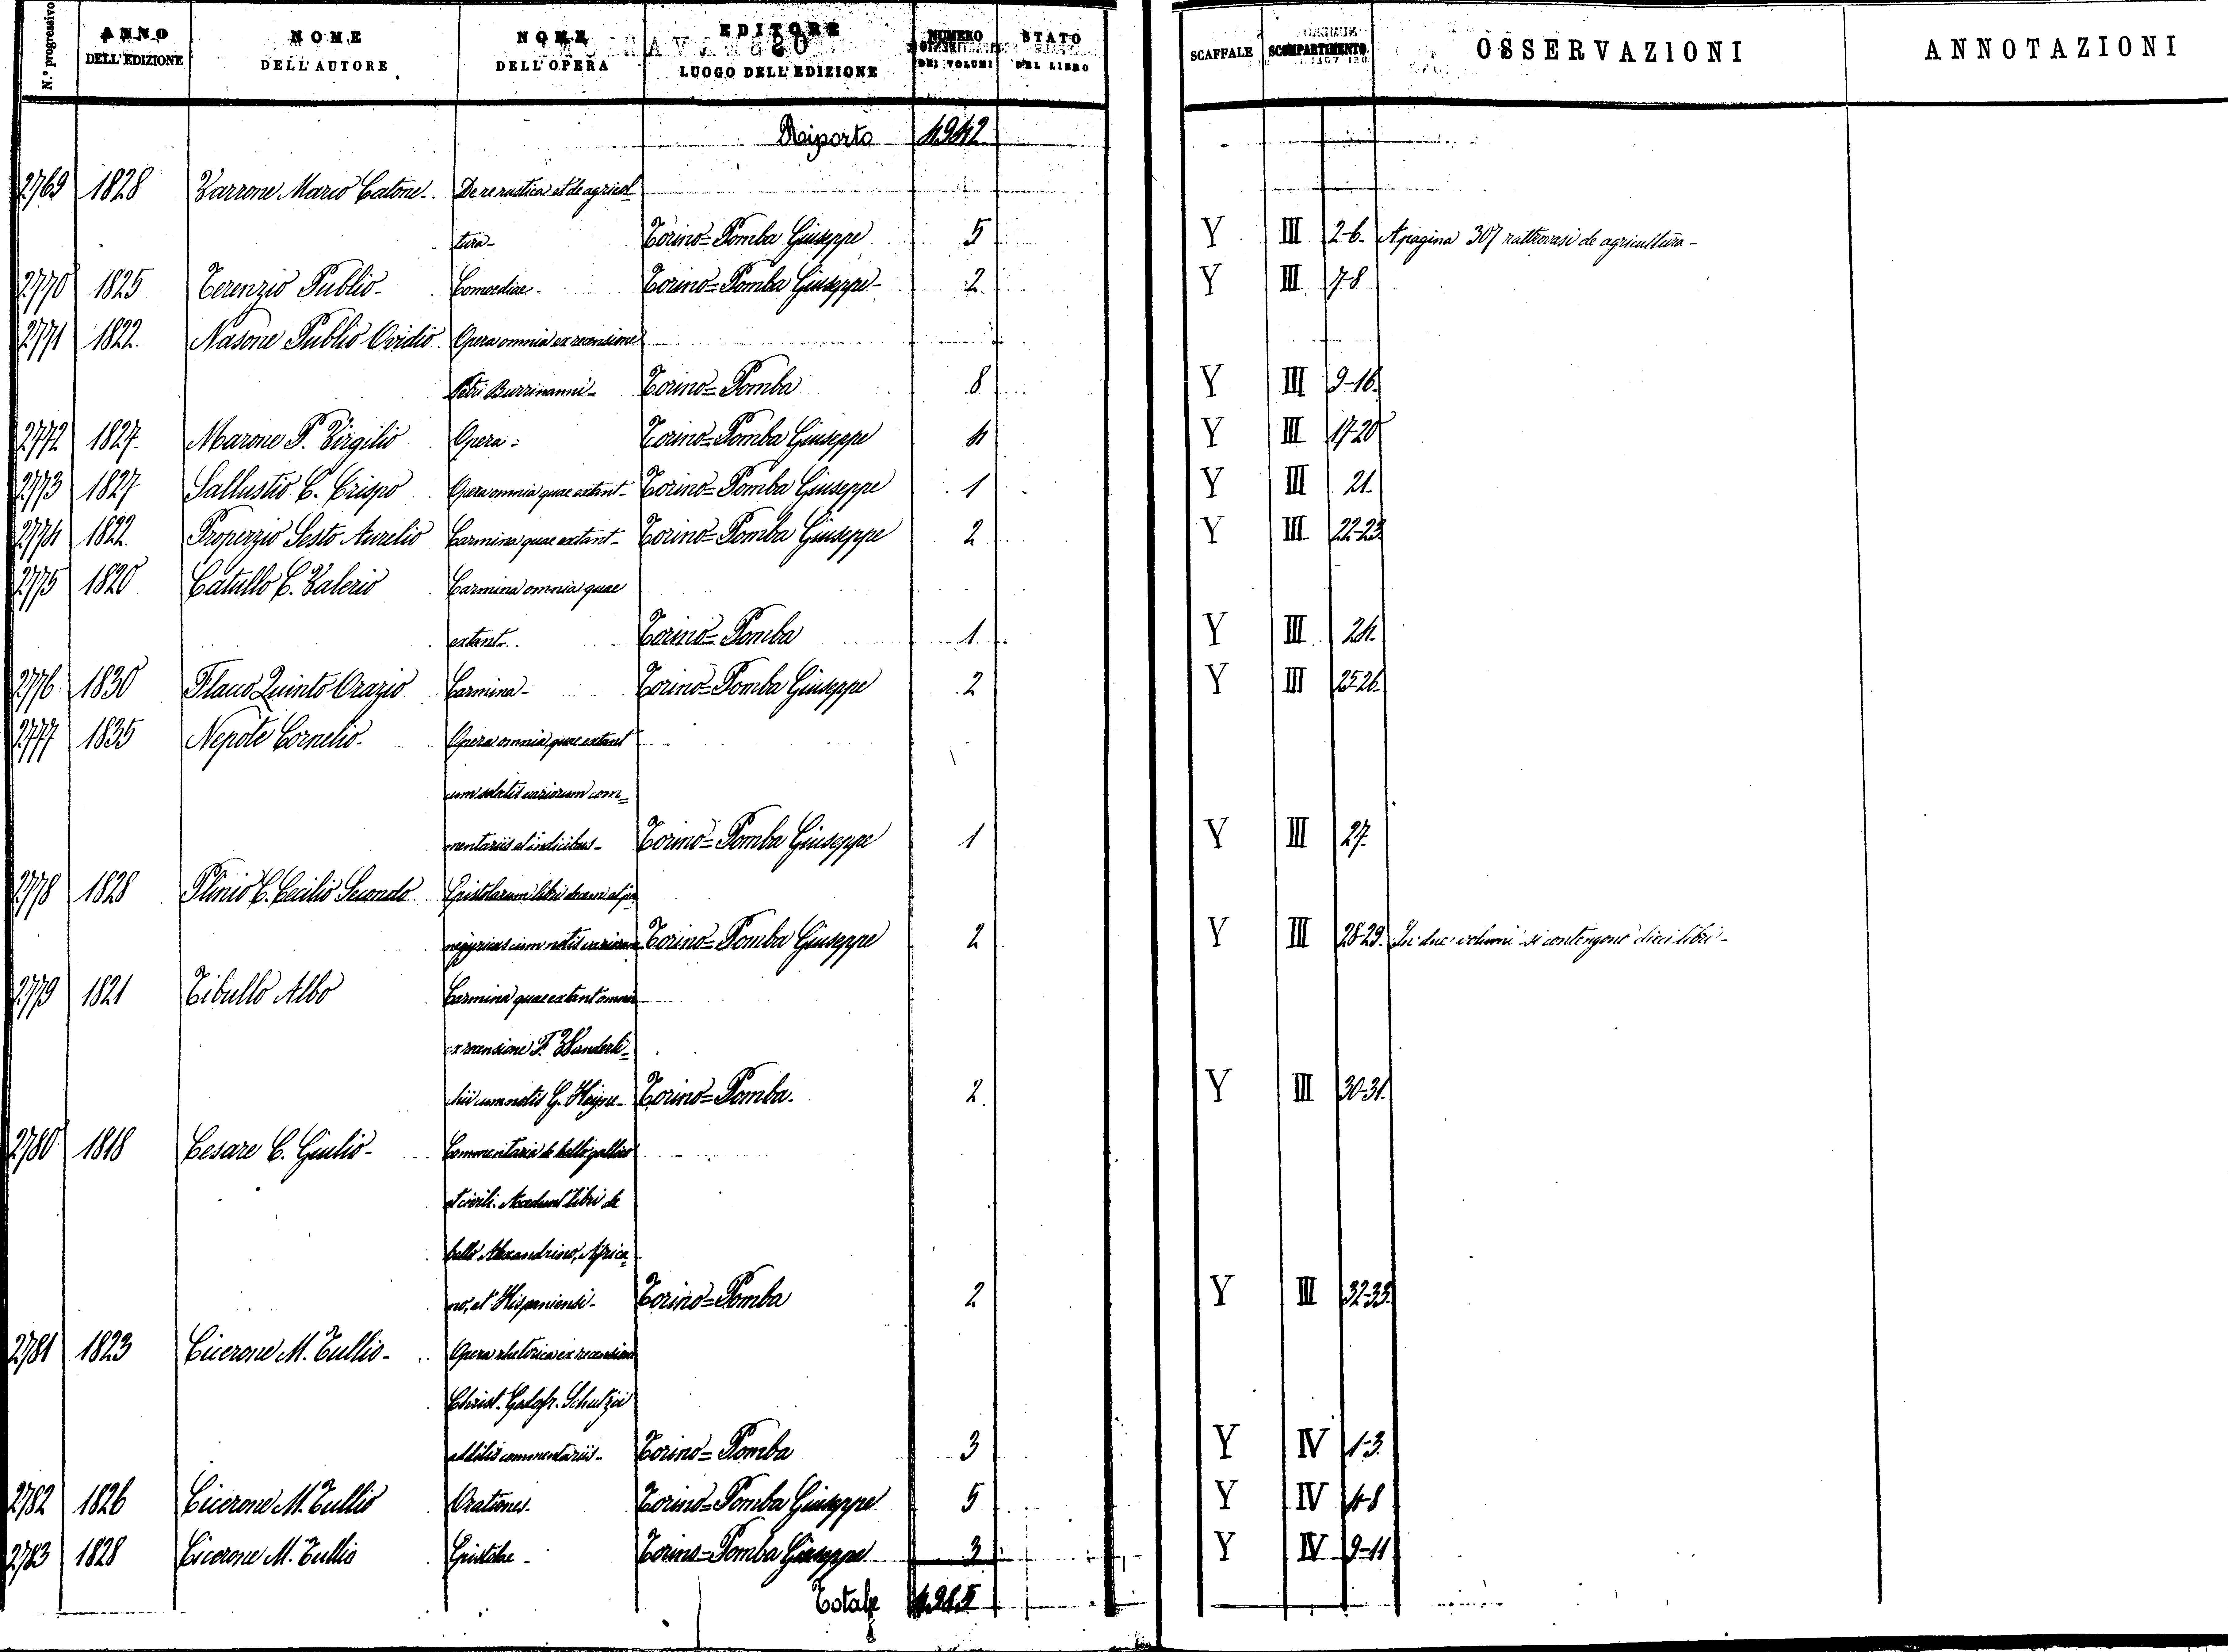 N.º progressivo
ANNO DELL'EDIZIONE
NOME DELL'AUTORE
NOME DELL'OPERA
EDITORE LUOGO DELL'EDIZIONE
NUMERO DEI VOLUMI
STATO DEL LIBRO
SCAFFALE
SCOMPARTIMENTO
OSSERVAZIONI
ANNOTAZIONI
Riporto 4942
2769 1828 Varrone Marco Catone - De re rustica et de agricol
tura - Torino = Pomba Giuseppe 5 Y III 2-6. A pagina 307 rattrovasi de agricultura -
2770 1825 Terenzio Publio - Comoediae - Torino = Pomba Giuseppe - 2 Y III 7-8
2771 1822. Nasone Publio Ovidio Opera omnia ex recensione
Petri Burrinanni - Torino = Pomba 8 Y III 9-16.
2772 1827. Marone P. Virgilio Opera - Torino = Pomba Giuseppe 4 Y III 17-20
2773 1827 Sallustio C. Crispo Opera omnia quae extant - Torino = Pomba Giuseppe 1 Y III 21.
2774 1822. Properzio Sesto Aurelio Carmina quae extant - Torino = Pomba Giuseppe 2 Y III 22-23
2775 1820 Catullo C. Valerio Carmina omnia quae
extant - Torino = Pomba 1 Y III 24.
2776 1830 Flacco Quinto Orazio Carmina - Torino = Pomba Giuseppe 2 Y III 25-26.
2777 1835 Nepote Cornelio - Opera omnia quae extant
cum selectis variorum com=
mentariis et indicibus - Torino = Pomba Giuseppe 1 Y III 27.
2778 1828 Plinio C. Cecilio Secondo Epistolarum libri decem et pa
negyricus cum notis variorum Torino = Pomba Giuseppe 2 Y III 28-29. In due volumi si contengono dieci libri -
2779 1821 Tibullo Albo Carmina quae extant omnia
ex recensione F. Wunderli=
chii cum notis G. Heyne - Torino = Pomba. 2 Y III 30-31.
2780 1818 Cesare C. Giulio - Commentaria de bello gallico
et civili. Accedunt libri de
bello Alexandrino, Africa=
no, et Hispaniensi - Torino = Pomba 2 Y III 32-33.
2781 1823 Cicerone M. Tullio - Opera rhetorica ex recensione
Christ. Godofr. Schutzii
additis commentariis - Torino = Pomba 3 Y IV 1-3.
2782 1826 Cicerone M. Tullio Orationes. Torino = Pomba Giuseppe 5 Y IV 4-8
2783 1828 Cicerone M. Tullio Epistolae - Torino = Pomba Giuseppe 3 Y IV 9-11
Totale 4985